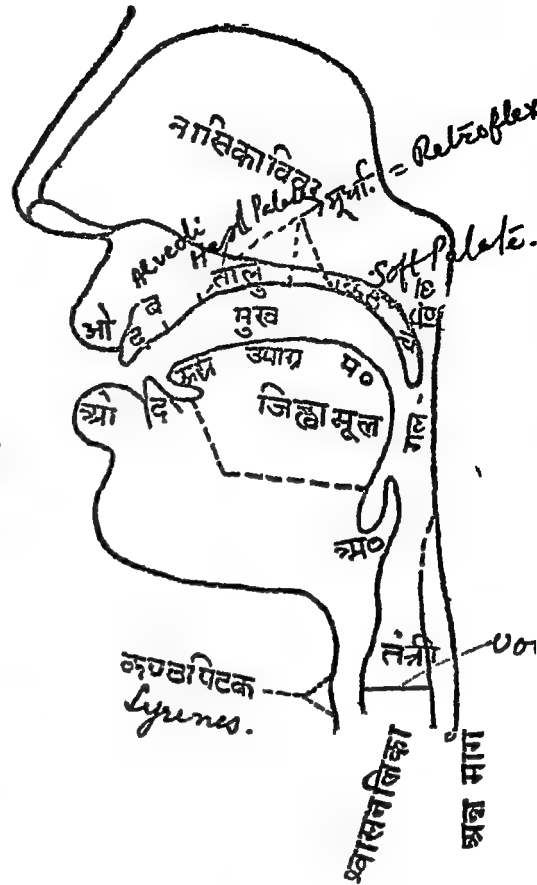 नासिकाविवर
मूर्धा = Retroflex
Alveoli
Hard Palate
Soft Palate.
तालु
ओ
द
व
मुख
अग्र
उपाग्र
म०
ओ
द
जिह्वामूल
गल-
अ०
तंत्री
कण्ठपिटक
Lyrenes.
श्वासनलिका
अन्न मार्ग